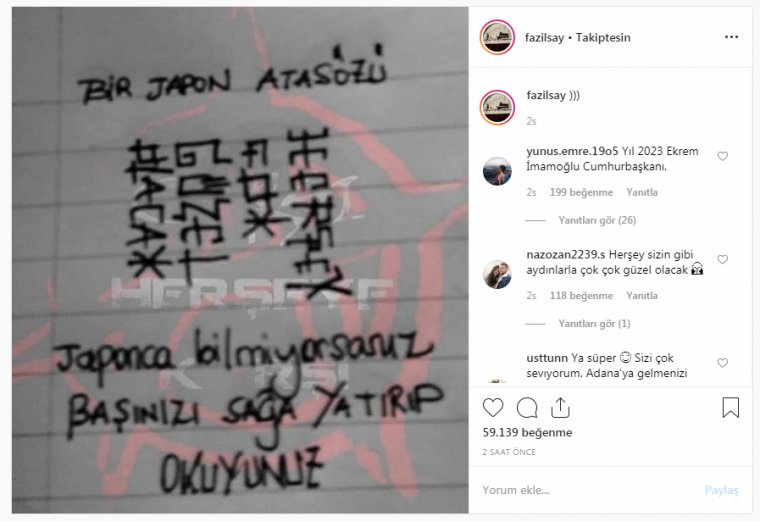 BİR JAPON ATASÖZÜ
HERŞEY
ÇOK
GÜZEL
OLACAK
HERŞEYE
Japonca bilmiyorsanız
BAŞINIZI SAĞA YATIRIP
OKUYUNUZ
fazilsay • Takiptesin
fazilsay )))
2s
yunus.emre.19o5 Yıl 2023 Ekrem
İmamoğlu Cumhurbaşkanı.
2s 199 beğenme Yanıtla
Yanıtları gör (26)
nazozan2239.s Herşey sizin gibi
aydınlarla çok çok güzel olacak
2s 118 beğenme Yanıtla
Yanıtları gör (1)
usttunn Ya süper 😊 Sizi çok
sevıyorum. Adana'ya gelmenizi
59.139 beğenme
2 SAAT ÖNCE
Yorum ekle...
Paylaş